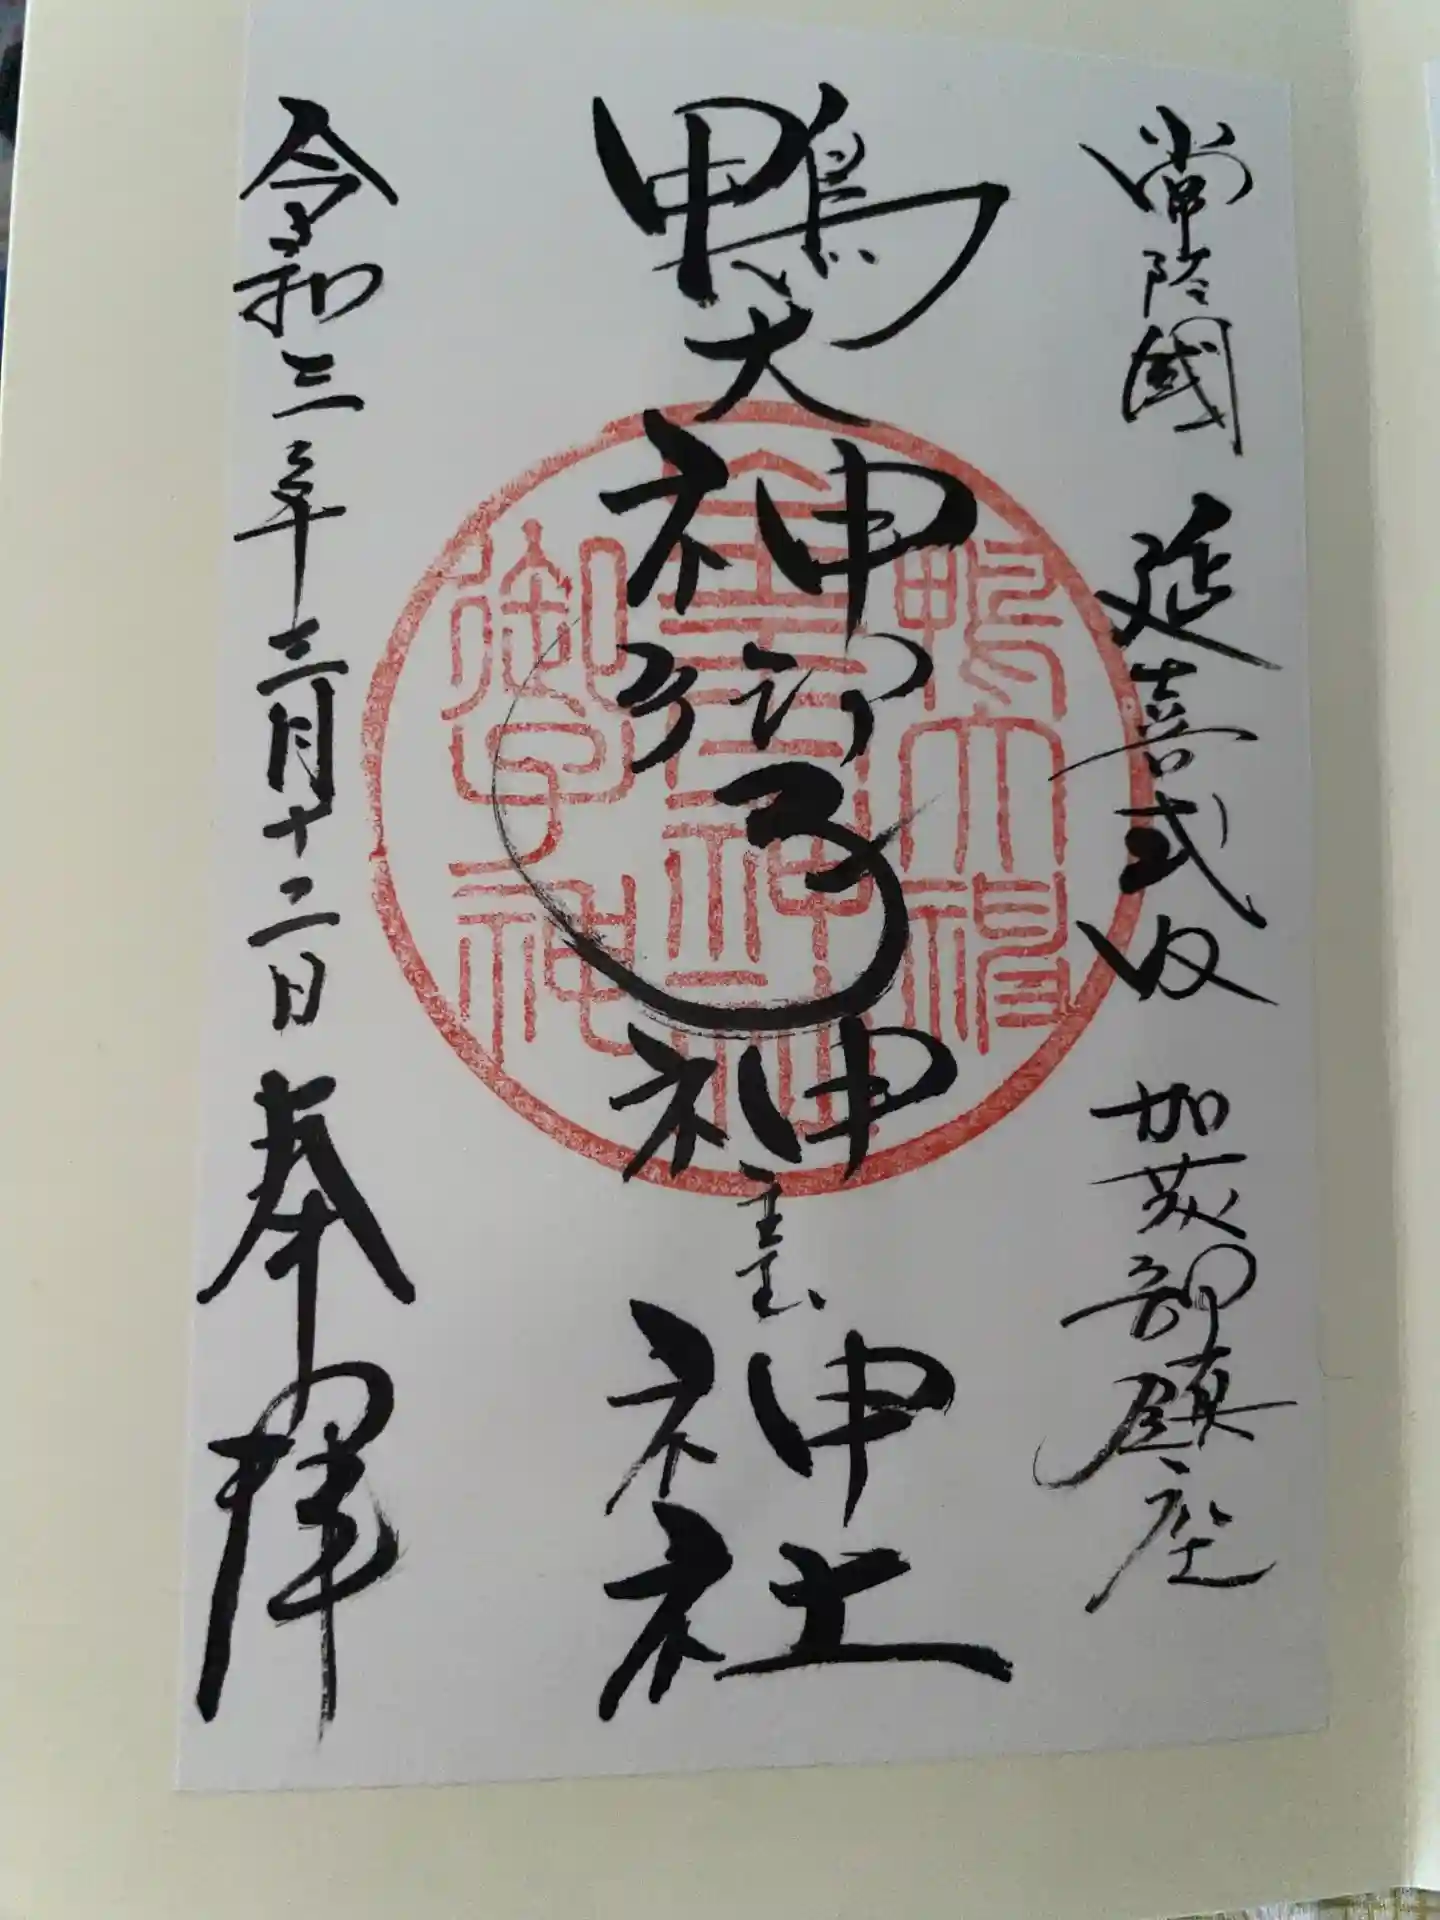 常陸國 延喜式内 加茂部鎮座
鴨大神御子神主玉神社
令和三年三月十二日 奉拝
鴨大神
御子神